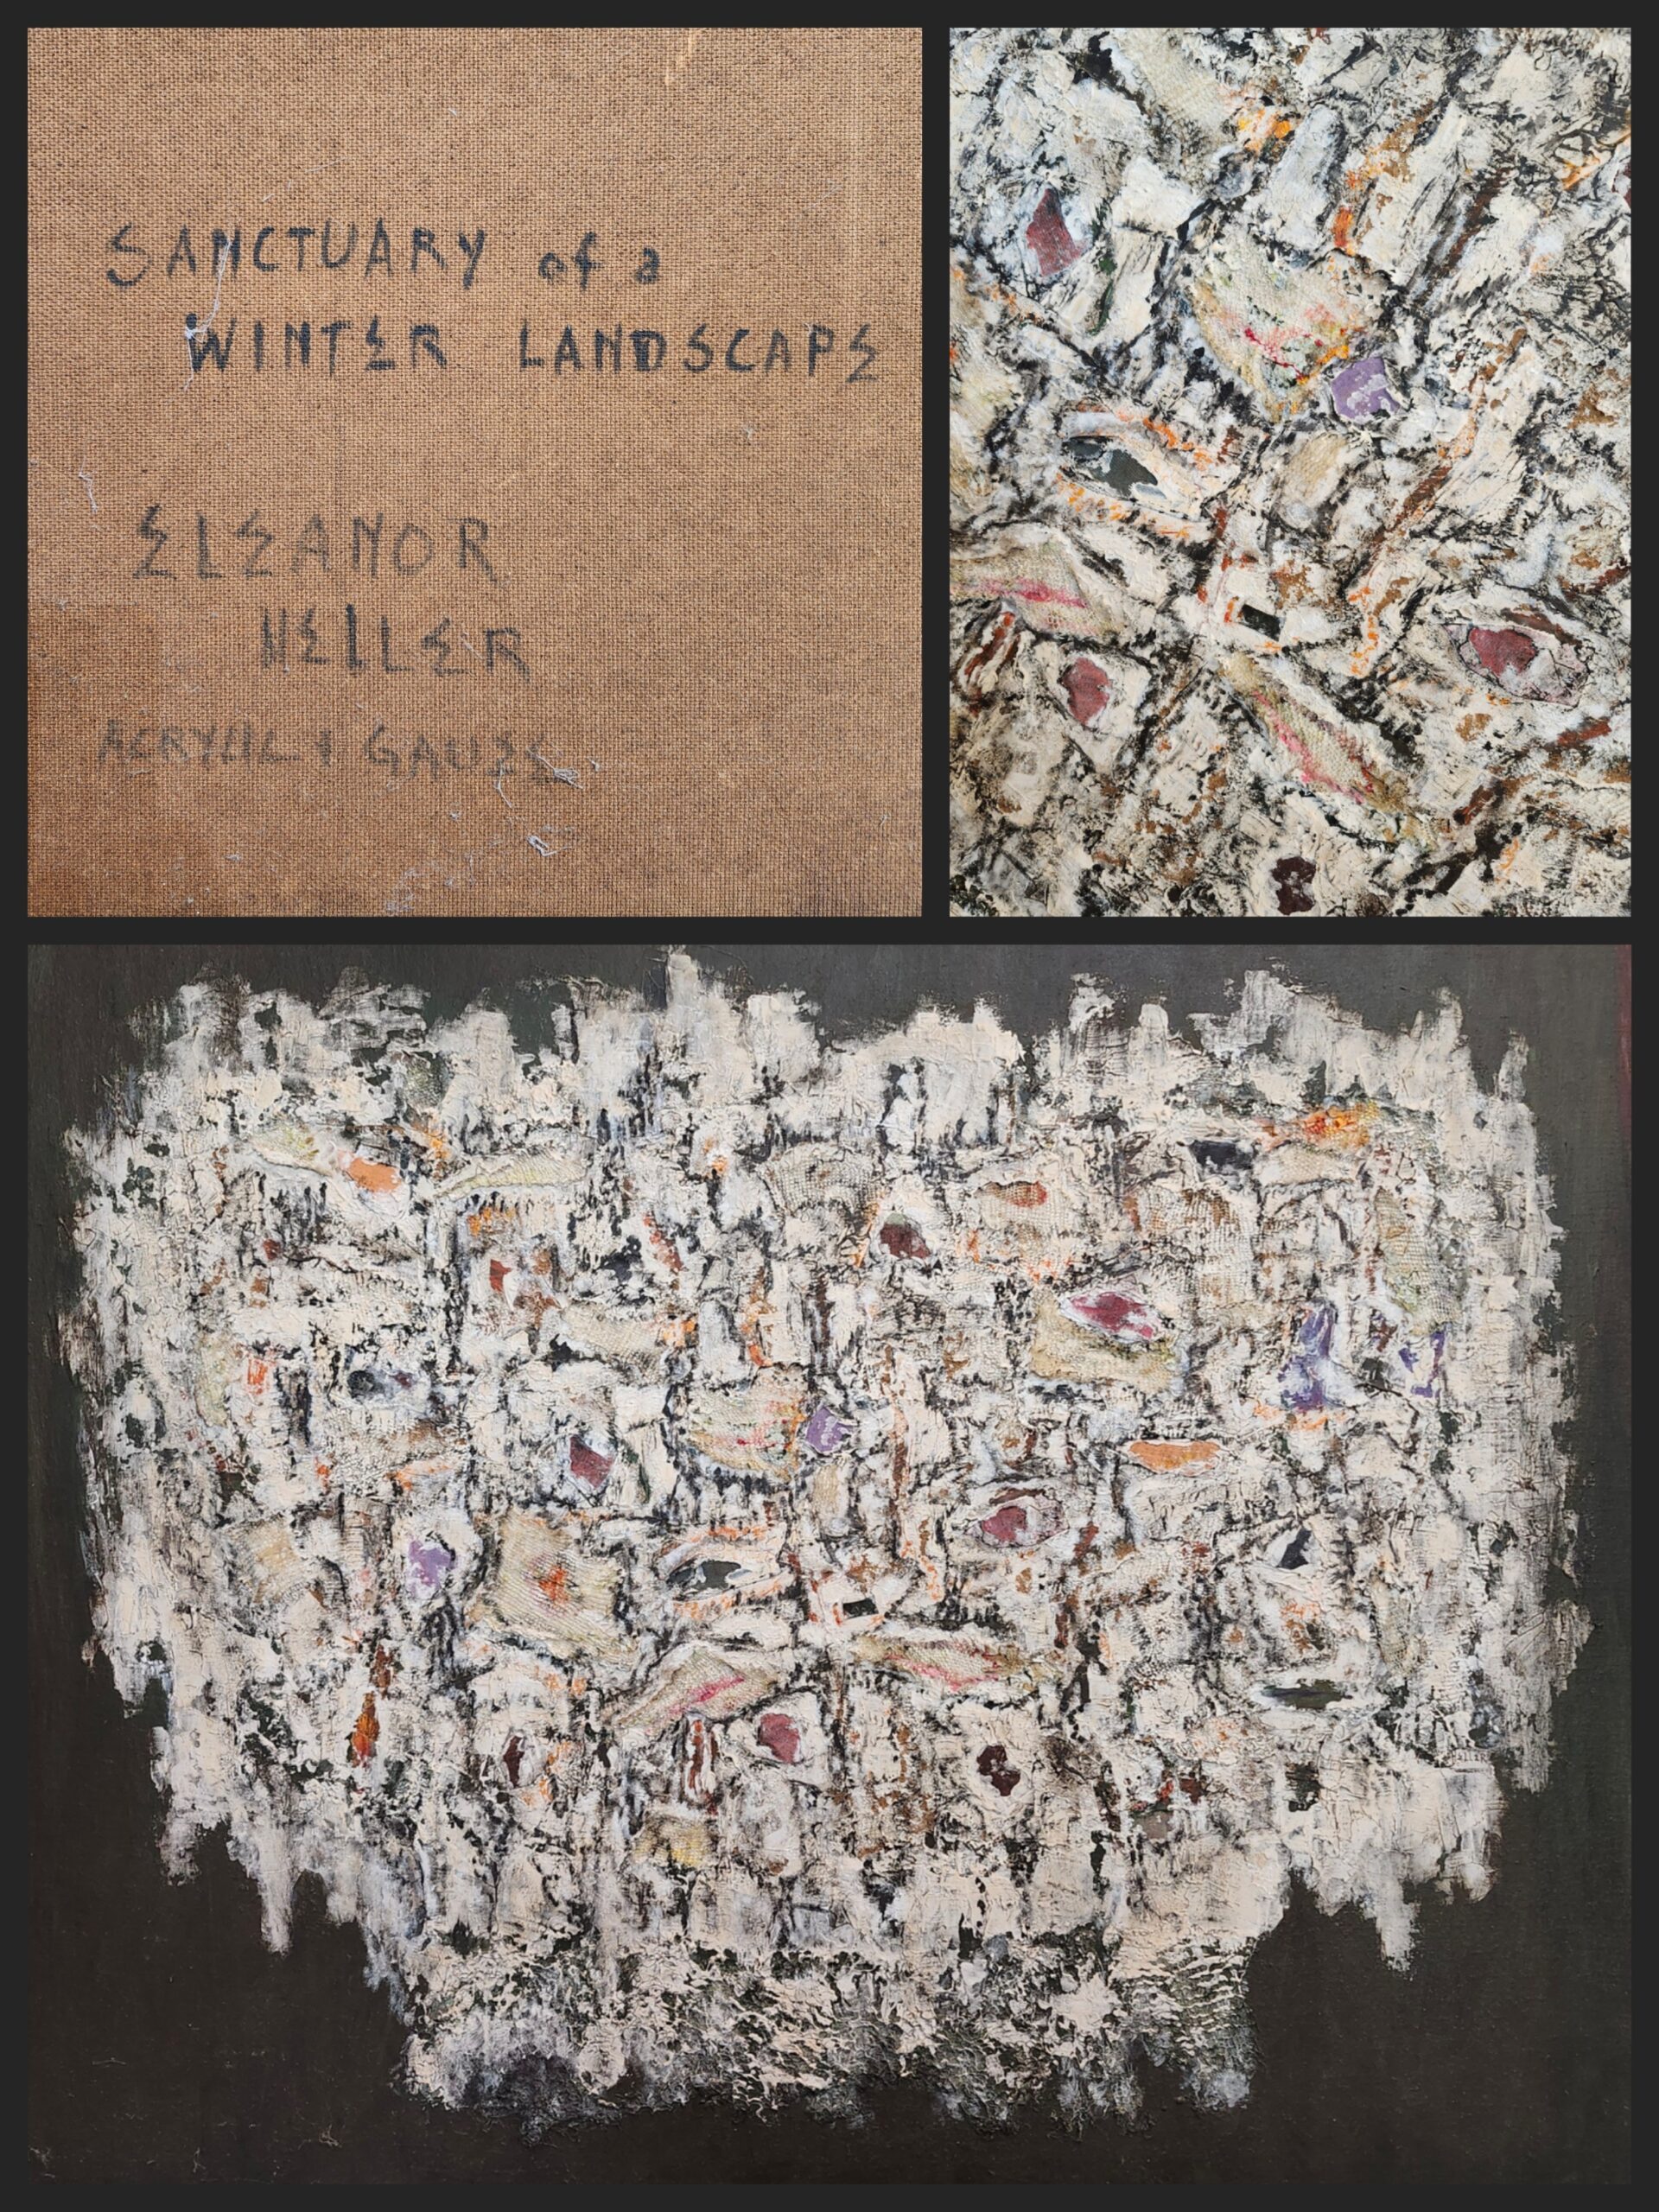 SANCTUARY of a
WINTER LANDSCAPE
ELEANOR
HELLER
ACRYLIC + GAUZE